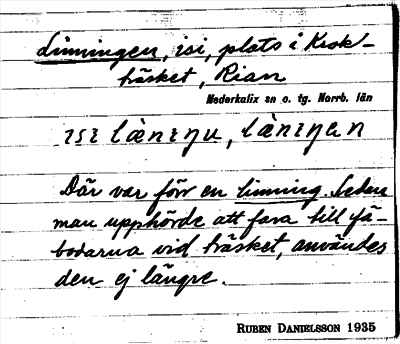 Linningen, isi, plats i Krok-
träsket, Rian
Nederkalix sn o. tg. Norrb. län
ısı lànıŋu, lànıŋən
Där var förr en linning. Sedan
man upphörde att fara till fä-
bodarna vid träsket, användes
den ej längre.
RUBEN DANIELSSON 1935